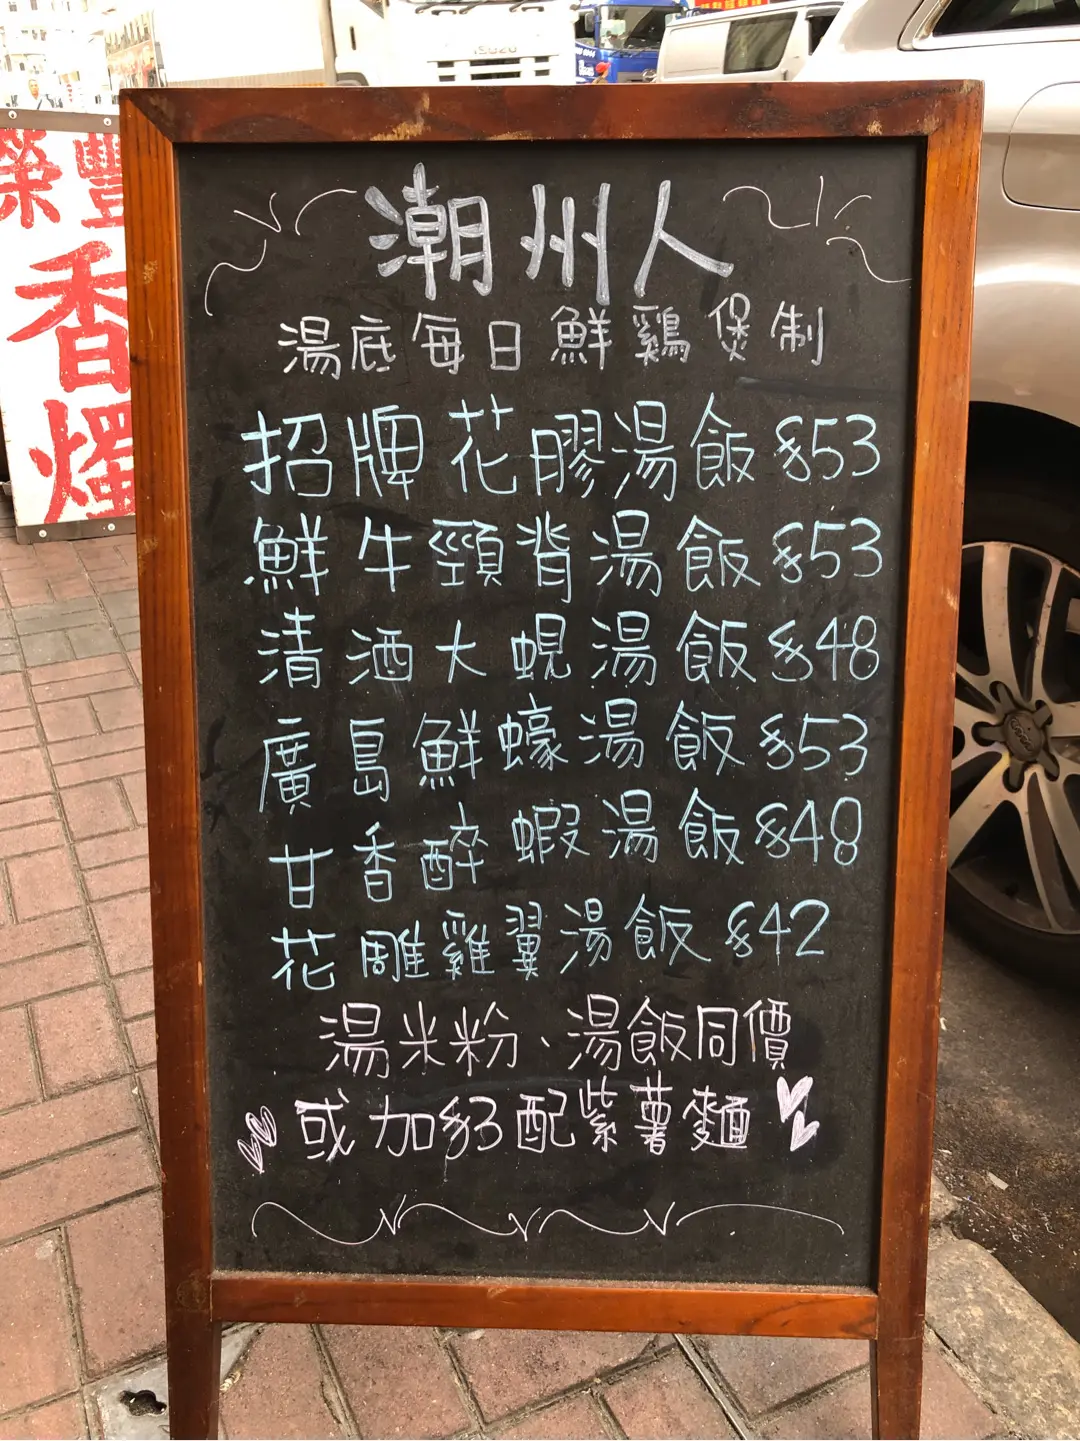 潮州人
湯底每日鮮鷄煲制
招牌花膠湯飯 $53
鮮牛頸背湯飯 $53
清酒大蜆湯飯 $48
廣島鮮蠔湯飯 $53
甘香醉蝦湯飯 $48
花雕雞翼湯飯 $42
湯米粉、湯飯同價
或加$3配紫薯麵
榮豐
香
燭
ISUZU